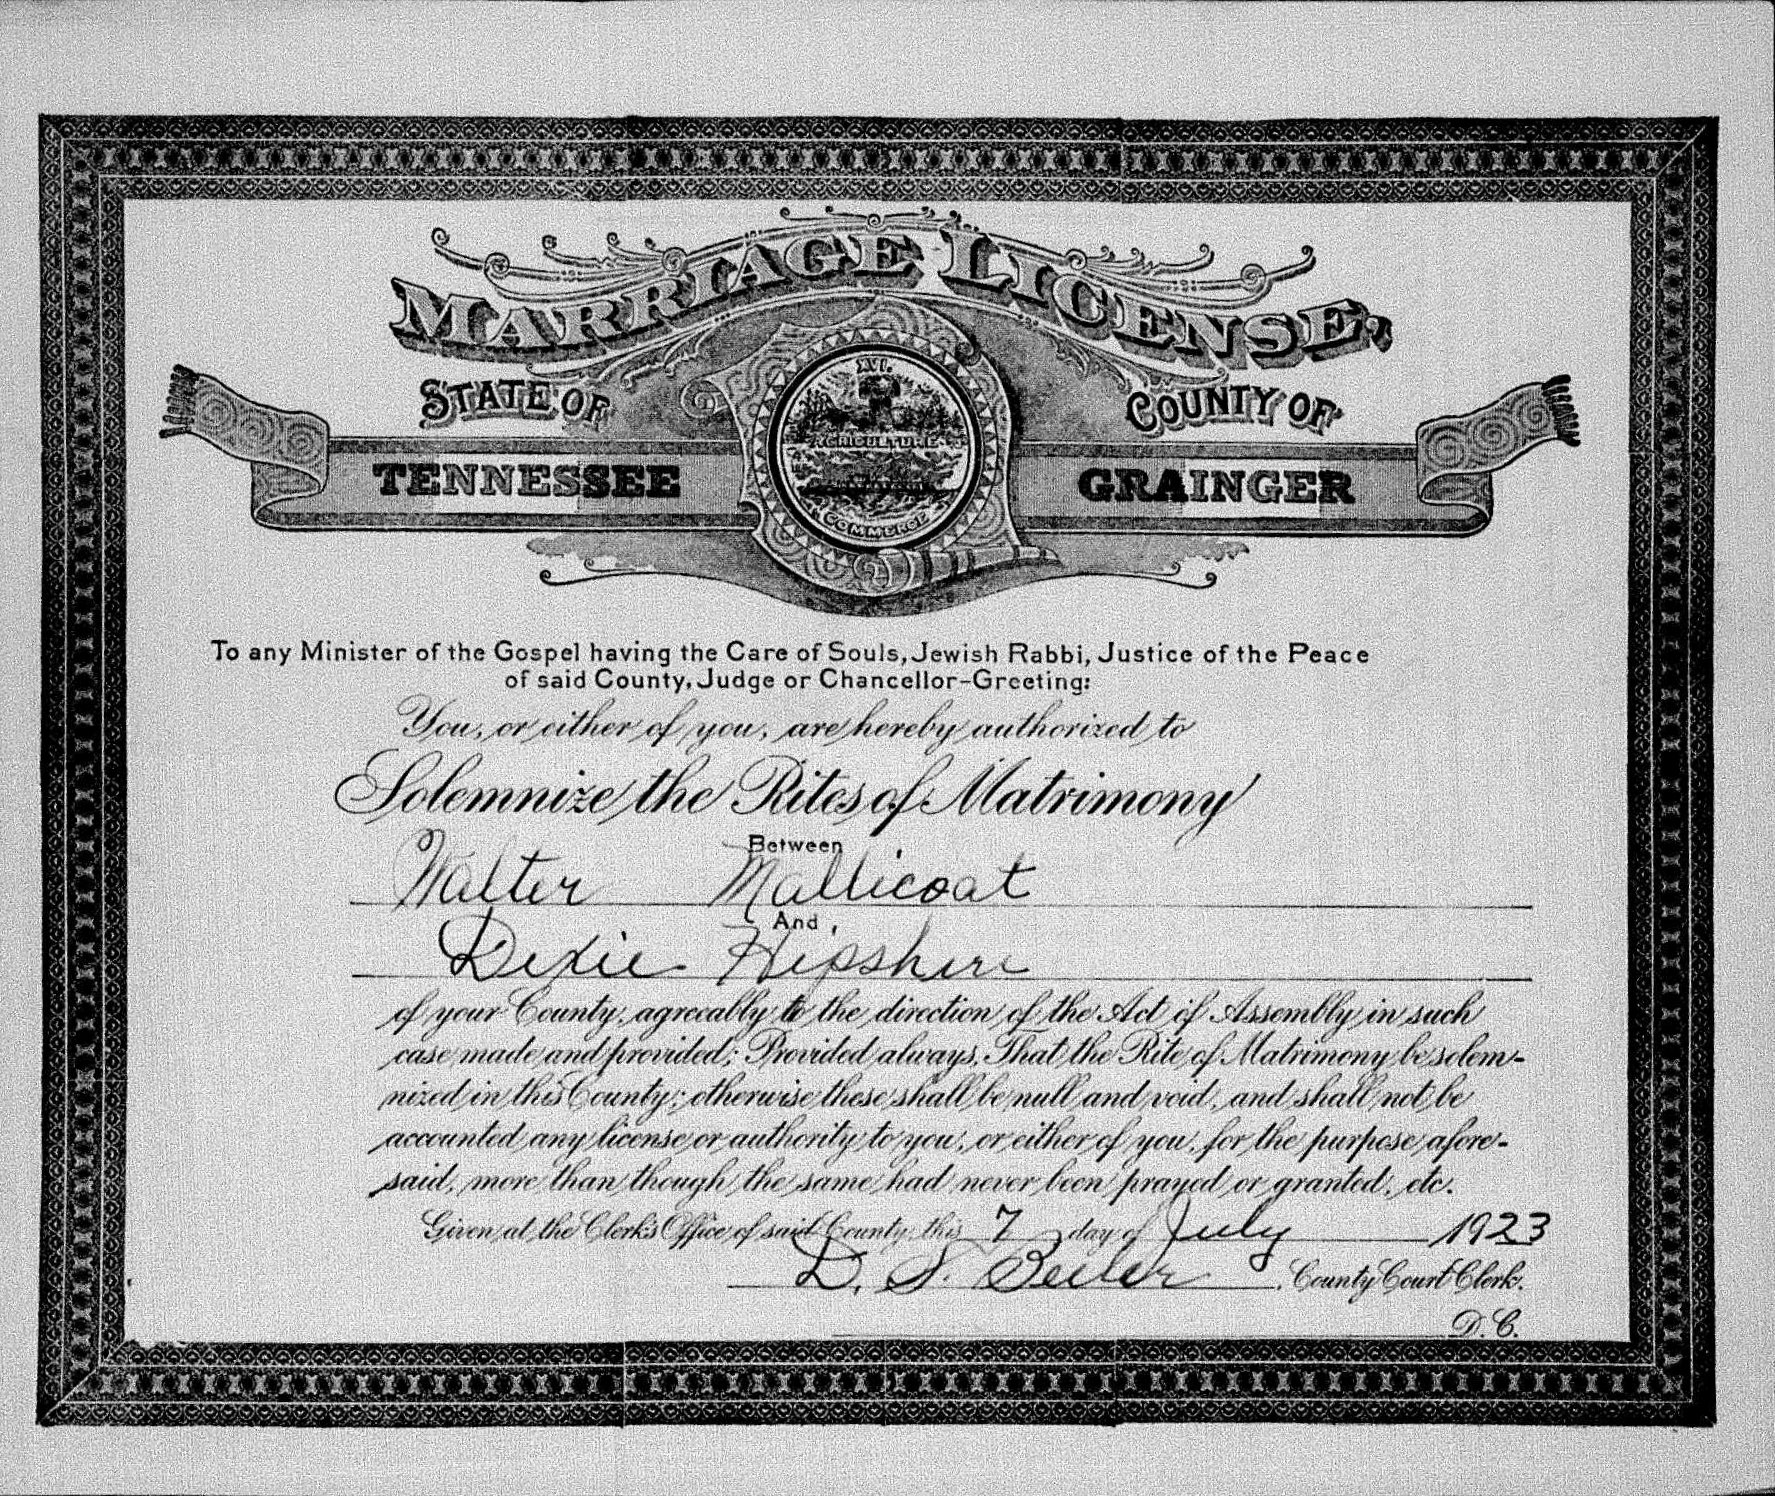 MARRIAGE LICENSE,
STATE OF
COUNTY OF
TENNESSEE
GRAINGER
XVI.
AGRICULTURE
COMMERCE
To any Minister of the Gospel having the Care of Souls, Jewish Rabbi, Justice of the Peace
of said County, Judge or Chancellor-Greeting:
You, or either of you, are hereby authorized to
Solemnize the Rites of Matrimony
Between
Walter Mallicoat
And
Dixie Hipshire
of your County, agreeably to the direction of the Act of Assembly in such
case made and provided; Provided always, That the Rite of Matrimony be solem-
nized in this County; otherwise these shall be null and void, and shall not be
accounted any license or authority to you, or either of you, for the purpose afore-
said, more than though the same had never been prayed or granted, etc.
Given at the Clerk's Office of said County, this 7 day of July 1923
D. S. Beeler, County Court Clerk.
D. C.